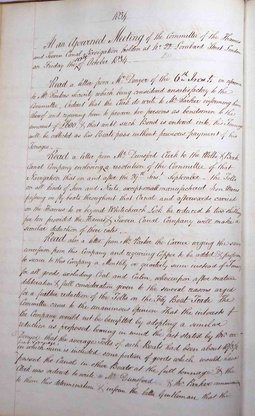 1834
At an Adjourned Meeting of the Committee of the Thames
and Severn Canal Navigation Holden at No 22 Lombard Street London
on Friday the October 1834
Read a letter from Mr of the 6th Inst. in
Mr Parker security which being considered unsatisfactory to the
Committee, Ordered that the Clerk do write to Mr Parker informing him
thereof and requiring him to procure two persons as bondsmen to the
amount of and that until such Bond is entered into his
will be to his Boats pass without previous payment of his
Tonnages.
Read a letter from Mr Dunsford Clerk to the Wilts & Berks
Canal Company enclosing a resolution of the Committee of that
Navigation that on and after the 29th September The Tolls
on all kinds of Iron and Nails, manufactured Iron Wares
passing in fly boats throughout that Canal and afterwards
on the Thames to or beyond Whitchurch Lock be reduced to two shillings
per ton provided the Thames & Severn Canal Company will make a
similar reduction of their rates.
Read also a letter from Mr Parker the Carrier urging the
from this Company and requiring Copper to be added &
to this Company a Monthly or yearly sum instead of
for all goods including Coal and Culm, whereupon after mature
deliberation & full consideration given to the several reasons urged
for a further reduction of the Tolls on the Fly Boat Trade The
Committee came to the unanimous opinion That the interests of
the Company would not be benefited by adopting a similar
reduction as proposed having in mind the fact stated by Mr
that the average Tolls of such Boats had been about
in which sum is included some portion of goods which would have
passed the Canal in other Boats at the full tonnage & the
Clerk was ordered to write to Mr Dunsford & Mr Parker
to them this determination & inform the latter Gentleman, that the